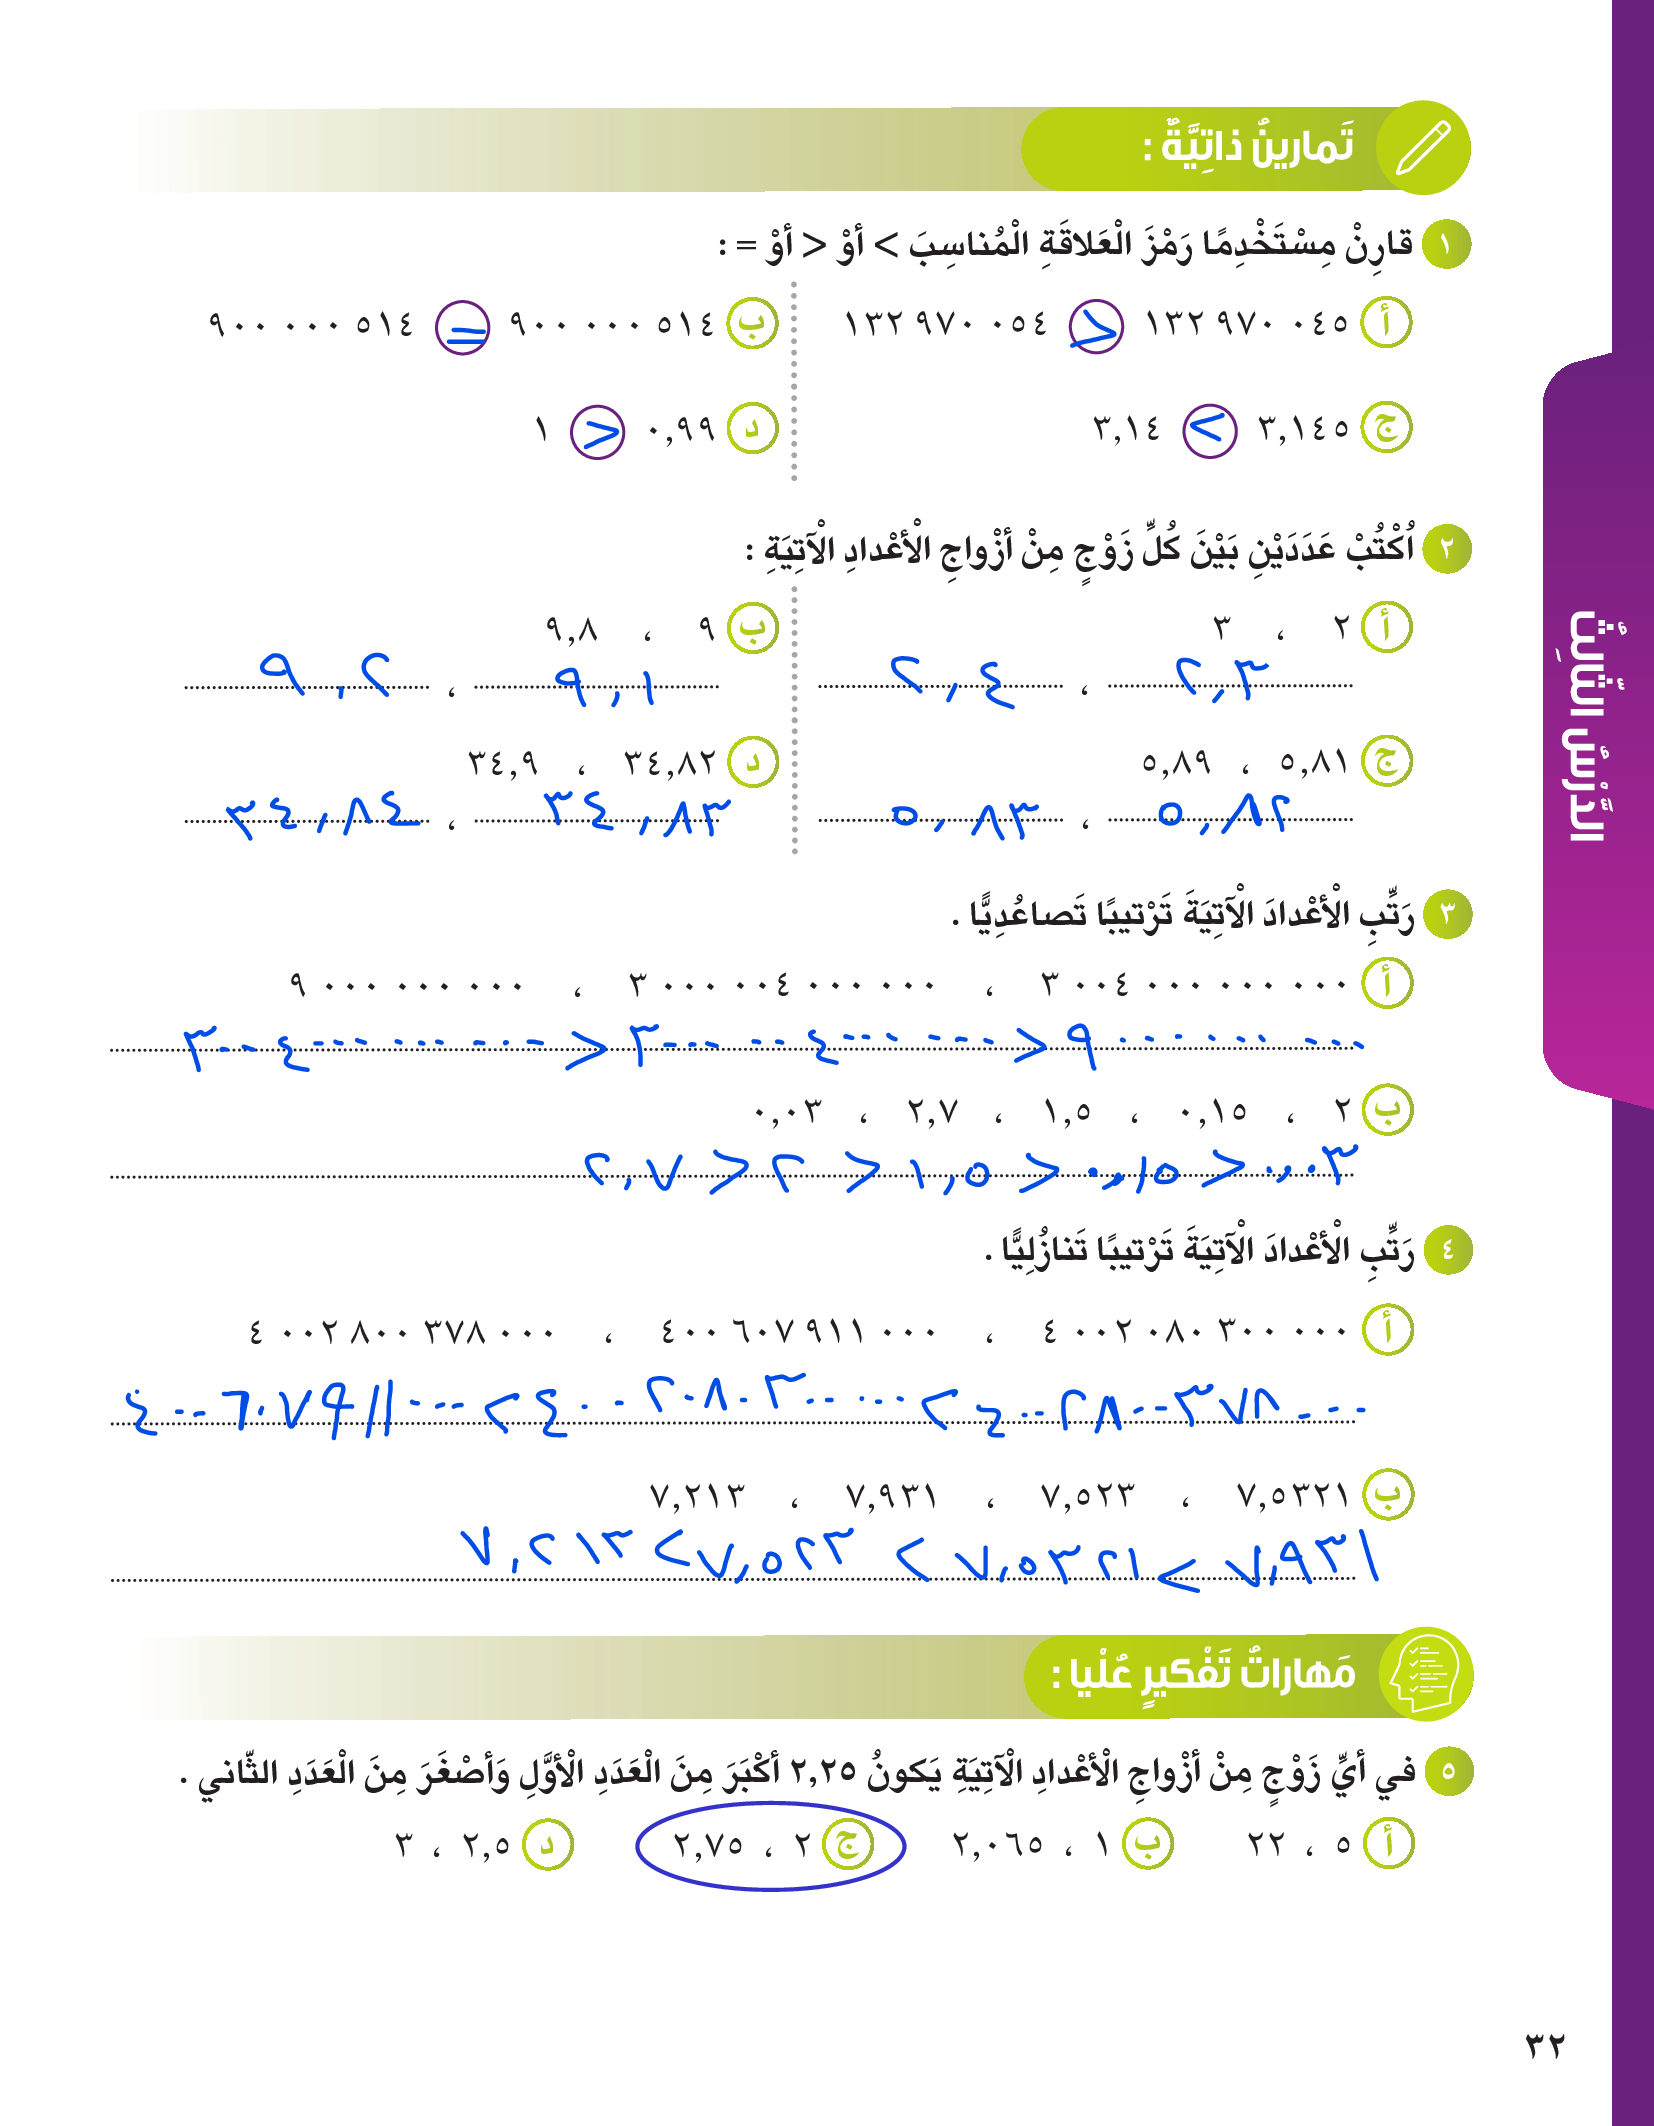 تَمارينُ ذاتِيَّةٌ :
١ قارِنْ مِسْتَخْدِمًا رَمْزَ الْعَلاقَةِ الْمُناسِبَ > أوْ < أوْ = :
أ ١٣٢ ٩٧٠ ٠٤٥ > ١٣٢ ٩٧٠ ٠٥٤
ب ٩٠٠ ٠٠٠ ٥١٤ = ٩٠٠ ٠٠٠ ٥١٤
ج ٣,١٤٥ < ٣,١٤
د ٠,٩٩ > ١
٢ اُكْتُبْ عَدَدَيْنِ بَيْنَ كُلِّ زَوْجٍ مِنْ أزْواجِ الْأعْدادِ الْآتِيَةِ :
أ ٢ ، ٣
ب ٩ ، ٩,٨
٢,٣ ، ٢,٤
٩,١ ، ٩,٢
ج ٥,٨١ ، ٥,٨٩
د ٣٤,٨٢ ، ٣٤,٩
٥,٨٢ ، ٥,٨٣
٣٤,٨٣ ، ٣٤,٨٤
٣ رَتِّبِ الْأعْدادَ الْآتِيَةَ تَرْتيبًا تَصاعُدِيًّا .
أ ٣ ٠٠٤ ٠٠٠ ٠٠٠ ٠٠٠ ، ٣ ٠٠٠ ٠٠٤ ٠٠٠ ٠٠٠ ، ٩ ٠٠٠ ٠٠٠ ٠٠٠
٩ ٠٠٠ ٠٠٠ ٠٠٠ > ٣ ٠٠٠ ٠٠٤ ٠٠٠ ٠٠٠ > ٣ ٠٠٤ ٠٠٠ ٠٠٠ ٠٠٠
ب ٢ ، ٠,١٥ ، ١,٥ ، ٢,٧ ، ٠,٠٣
٠,٠٣ > ٠,١٥ > ١,٥ > ٢ > ٢,٧
٤ رَتِّبِ الْأعْدادَ الْآتِيَةَ تَرْتيبًا تَنازُلِيًّا .
أ ٤ ٠٠٢ ٠٨٠ ٣٠٠ ٠٠٠ ، ٤٠٠ ٦٠٧ ٩١١ ٠٠٠ ، ٤ ٠٠٢ ٨٠٠ ٣٧٨ ٠٠٠
٤ ٠٠٢٨٠٠٣٧٨ ٠٠٠ < ٤ ٠٠٢٠٨٠٣٠٠ ٠٠٠ < ٤٠٠٦٠٧٩١١ ٠٠٠
ب ٧,٥٣٢١ ، ٧,٥٢٣ ، ٧,٩٣١ ، ٧,٢١٣
٧,٩٣١ < ٧,٥٣٢١ < ٧,٥٢٣ < ٧,٢١٣
مَهاراتُ تَفْكيرٍ عُلْيا :
٥ في أيِّ زَوْجٍ مِنْ أزْواجِ الْأعْدادِ الْآتِيَةِ يَكونُ ٢,٢٥ أكْبَرَ مِنَ الْعَدَدِ الْأوَّلِ وَأصْغَرَ مِنَ الْعَدَدِ الثّاني .
أ ٥ ، ٢٢ ب ١ ، ٢,٠٦٥ ج ٢ ، ٢,٧٥ د ٢,٥ ، ٣
الدَّرْسُ الثّالِثُ
٣٢